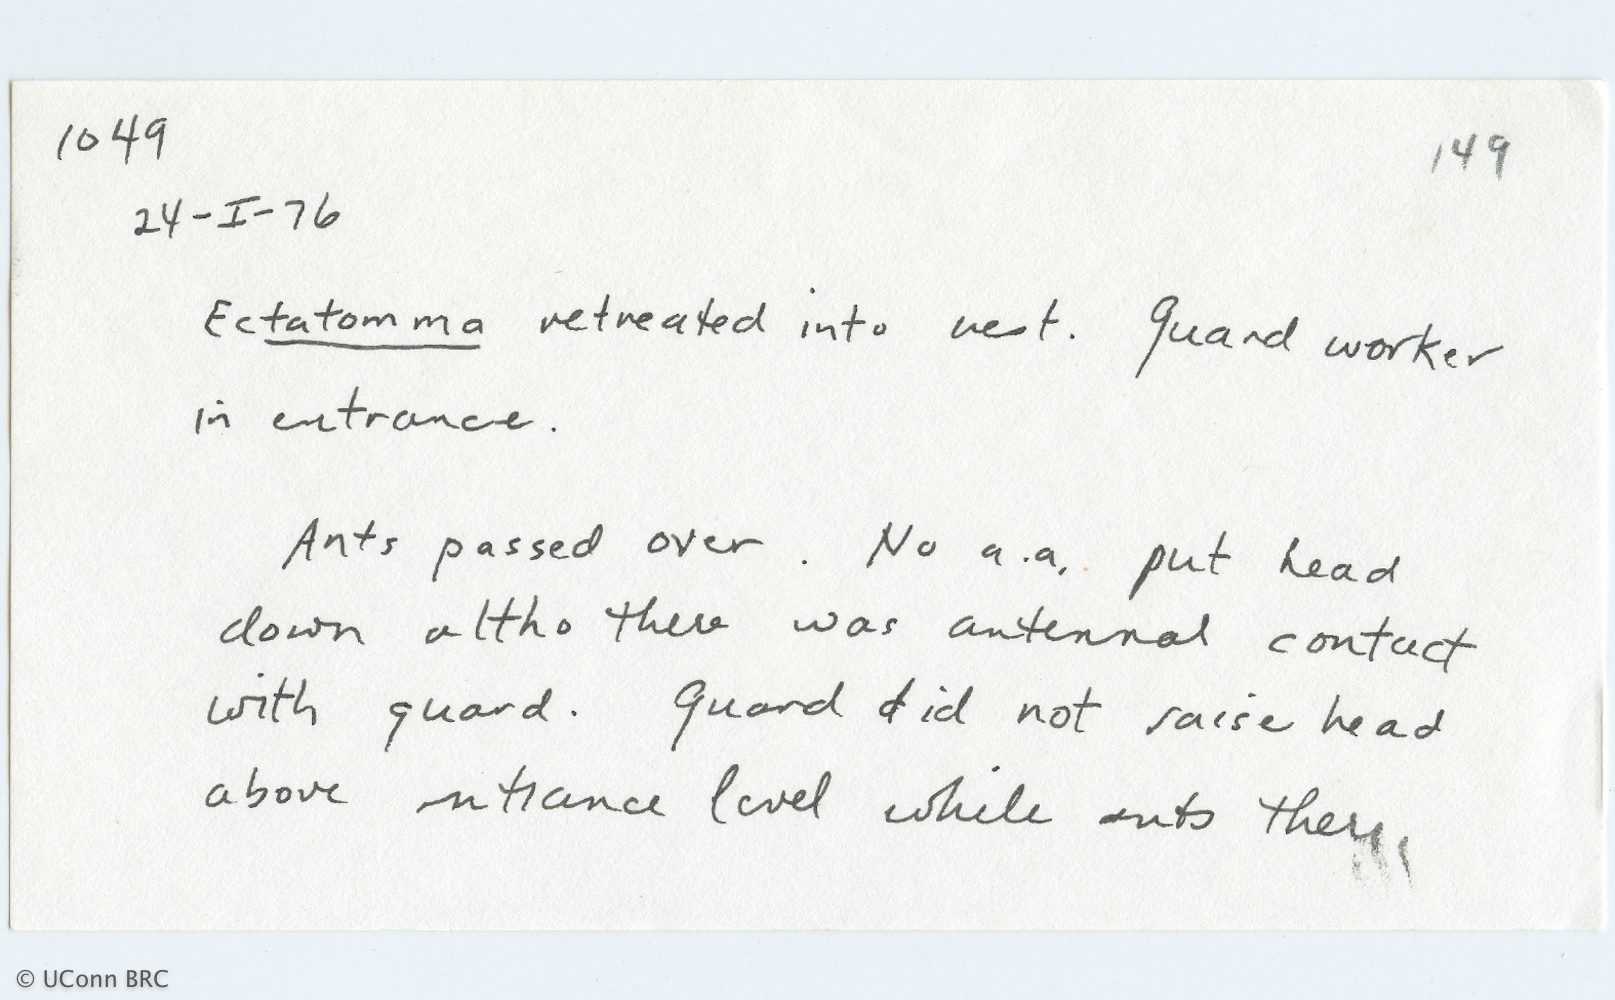 1049
149
24-I-76
Ectatomma retreated into nest. Guard worker
in entrance.
Ants passed over. No a.a. put head
down altho there was antennal contact
with guard. Guard did not raise head
above entrance level while ants there.
© UConn BRC